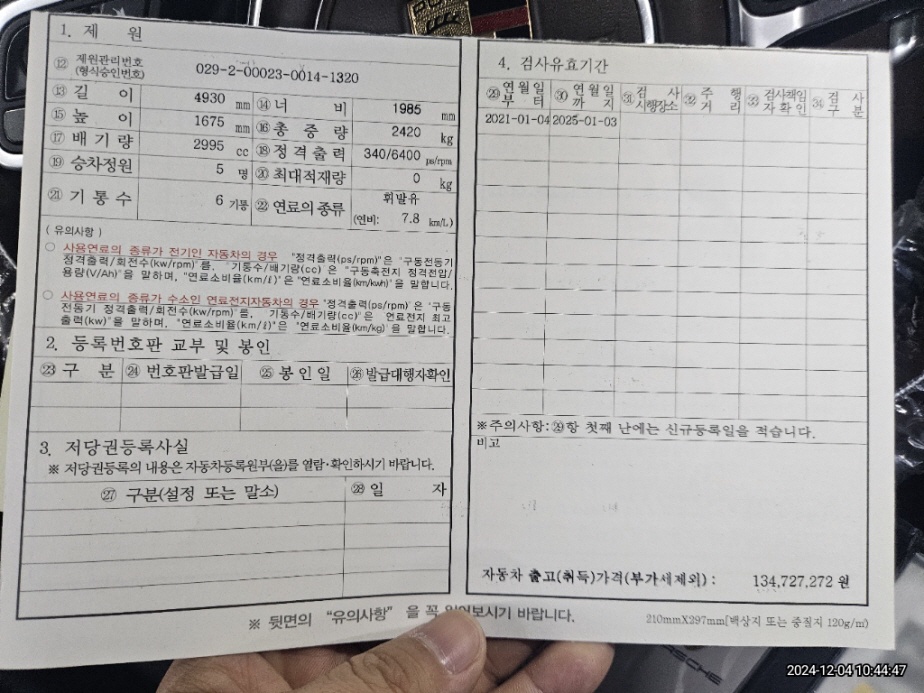 1. 제 원
⑫ 제원관리번호
(형식승인번호)
029-2-00023-0014-1320
⑬ 길 이 4930 mm ⑭ 너 비 1985 mm
⑮ 높 이 1675 mm ⑯ 총 중 량 2420 kg
⑰ 배 기 량 2995 cc ⑱ 정 격 출 력 340/6400 ps/rpm
⑲ 승차정원 5 명 ⑳ 최대적재량 0 kg
㉑ 기 통 수 6 기통 ㉒ 연료의 종류 휘발유
(연비: 7.8 km/L)
( 유의사항 )
○ 사용연료의 종류가 전기인 자동차의 경우 "정격출력(ps/rpm)"은 "구동전동기
정격출력/회전수(kw/rpm)"를, "기통수/배기량(cc)"은 "구동축전지 정격전압/
용량(V/Ah)"을 말하며, "연료소비율(km/ℓ)"은 "연료소비율(km/kwh)"을 말합니다.
○ 사용연료의 종류가 수소인 연료전지자동차의 경우 "정격출력(ps/rpm)"은 "구동
전동기 정격출력/회전수(kw/rpm)"를, "기통수/배기량(cc)"은 "연료전지 최고
출력(kw)"을 말하며, "연료소비율(km/ℓ)"은 "연료소비율(km/kg)"을 말합니다.
2. 등록번호판 교부 및 봉인
㉓ 구 분 ㉔ 번호판발급일 ㉕ 봉 인 일 ㉖ 발급대행자확인
3. 저당권등록사실
※ 저당권등록의 내용은 자동차등록원부(을)를 열람·확인하시기 바랍니다.
㉗ 구분(설정 또는 말소) ㉘ 일 자
4. 검사유효기간
㉙ 연월일부터 ㉚ 연월일까지 ㉛ 검 사 시행장소 ㉜ 주 행 거 리 ㉝ 검사책임자확인 ㉞ 검 사 구 분
2021-01-04 2025-01-03
※주의사항:㉙항 첫째 난에는 신규등록일을 적습니다.
비고
자동차 출고(취득)가격(부가세제외) : 134,727,272 원
※ 뒷면의 "유의사항" 을 꼭 읽어보시기 바랍니다.
210mmX297mm[백상지 또는 중질지 120g/m)
2024-12-04 10:44:47